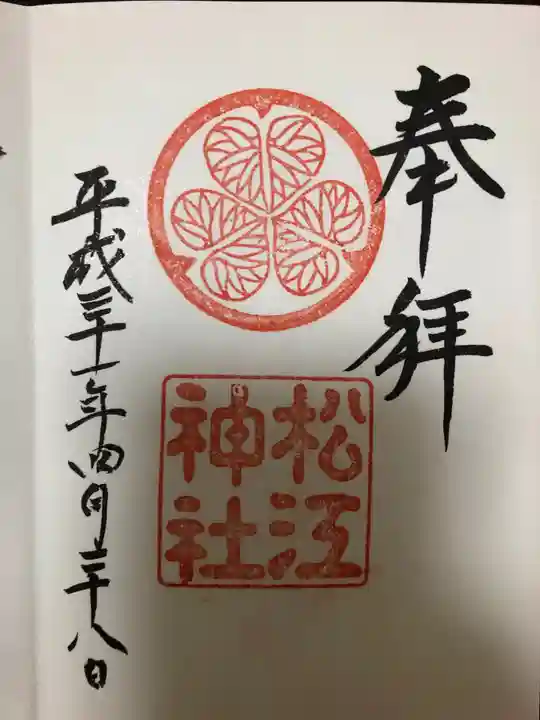 奉拝
松江
神社
平成三十一年四月二十八日